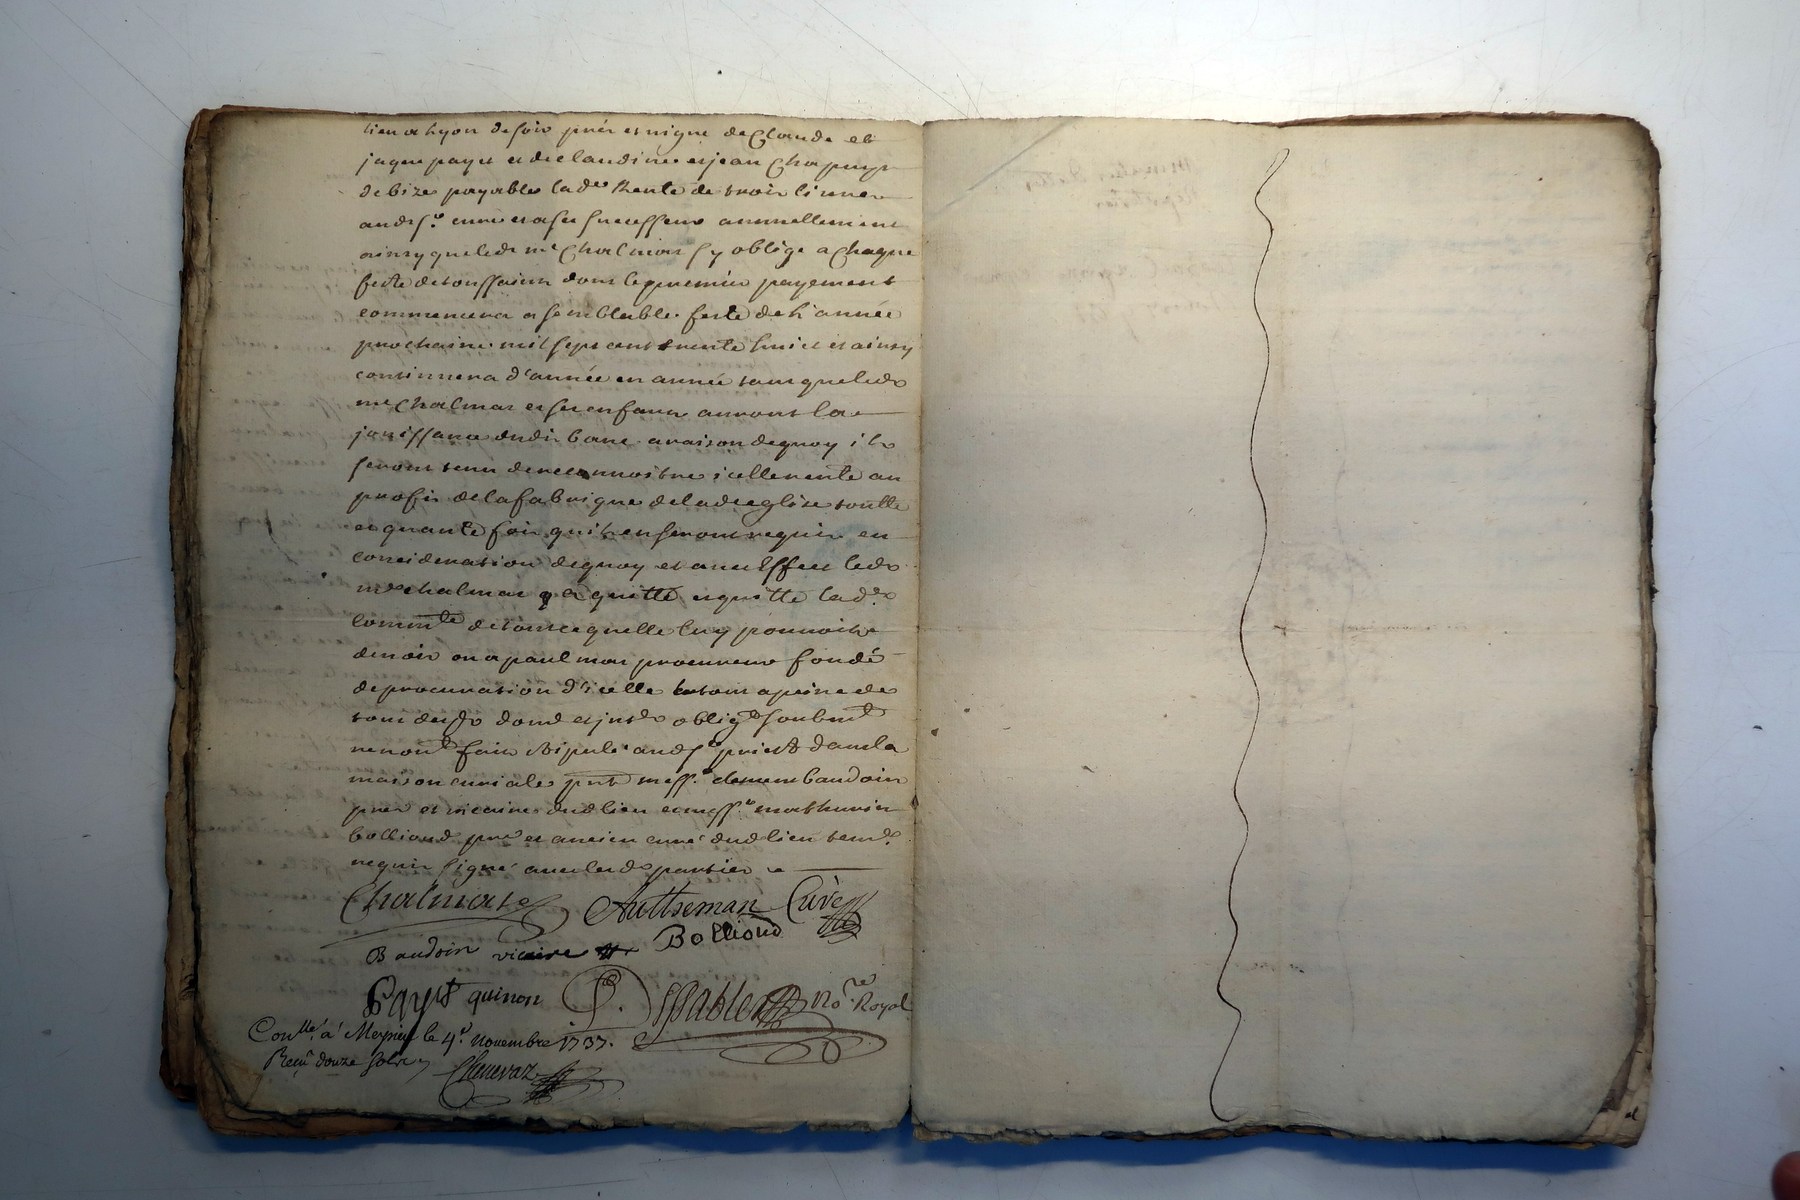 lien a lyon de soir près et vigne de Claude et
jaque payet et de claudine et jean Chapuys
de bize payable lad.e Rente de trois livres
aud s.r curé et a ses successeurs annuellement
ainsy que led m.e Chalmas s'y oblige a chaque
feste de toussaint dont le premier payement
commencera a semblable feste de l'année
prochaine mil sept cent trente huict et ainsy
continuera d'année en année tant que led
m.e Chalmas et ses enfans auront la
jouissance dudit banc a raison de quoy ils
seront tenu de reconnoistre icelle rente au
profit de la fabrique de lad eglise toutte
et quante fois qu'ils en seront requis en
consideration de quoy et a cet Effect led
m.e chalmas a quitté et quitte lad.e
comm.te de tout ce quelle luy pourroit
devoir ou a paul mas procureur fondé
de procuration d'icelle le tout a peine de
tous desp dom et jnt oblig soubm
renon fait et stipulé aud s.r prieur dans la
maison curiale pnt mess.e clement baudoin
pret et vicaire dud lieu et mess.e mathurin
bolliond pre et ancien curé dud lieu tem
requis signé avec les d parties
Chalmas Authseman Curé
Baudoin vicaire Bolliond
Payet quinon P. No.re Royal
Con.llé a Meyzieu le 4.e novembre 1737.
Reçu douze sols
Chenevaz